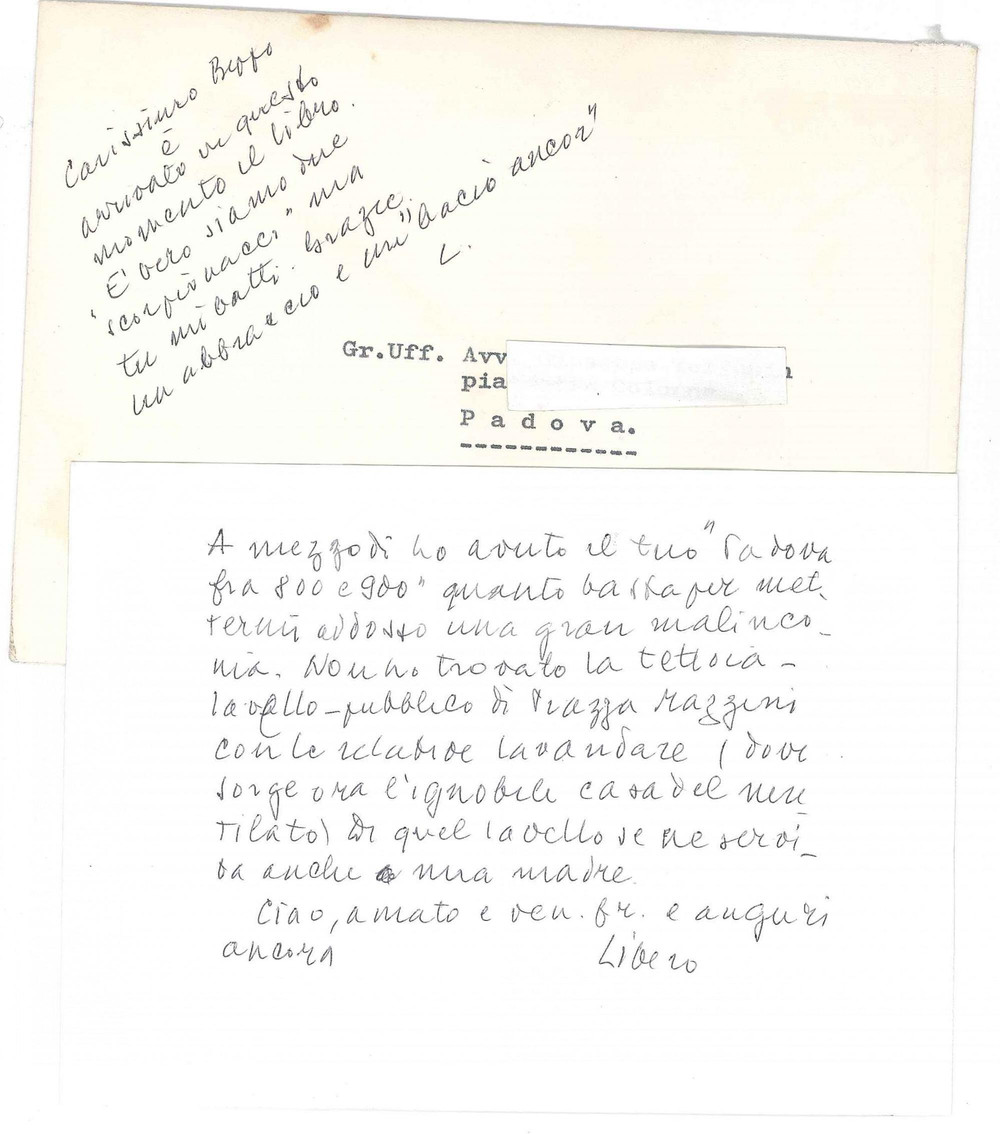 Carissimo Beppo
è
arrivato in questo
momento il libro.
E' vero siamo due
"scorpionacci" ma
tu mi batti. Grazie.
un abbraccio e un "bacio ancor"
L.
Gr.Uff. Avv
pia
Padova.
A mezzodì ho avuto il tuo "Padova
fra 800 e 900" quanto basta per met-
termi addosso una gran malinco-
nia. Non ho trovato la tettoia-
lavello-pubblico di Piazza Mazzini
con le relative lavandare (dove
sorge ora l'ignobile casa del mu-
tilato) Di quel lavello se ne servi-
va anche mia madre.
Ciao, amato e ven. fr. e auguri
ancora
Libero